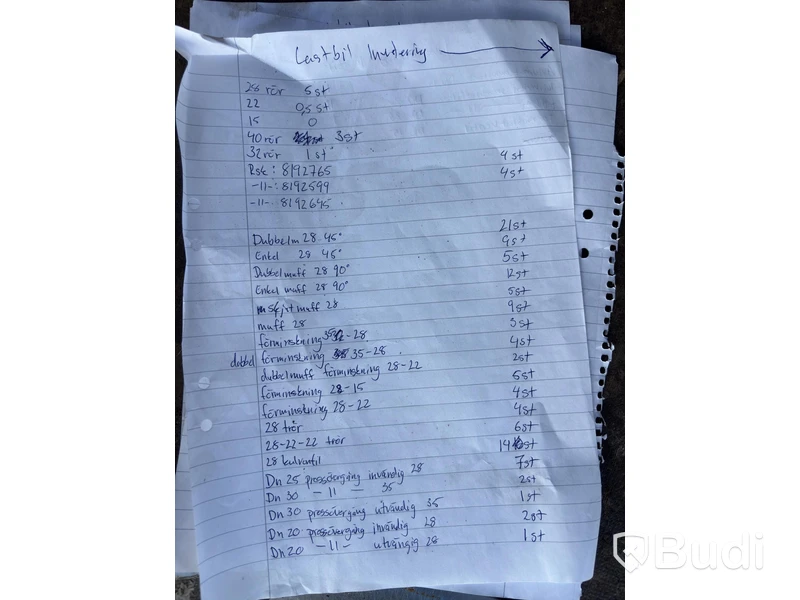 Lastbil Invetering
28 rör 5 st
22 0,5 st
15 0
40 rör 3 st
32 rör 1 st
Rsk: 8192765 4 st
-11-: 8192599 4 st
-11-: 8192645
Dubbelm 28 45° 21 st
Enkel 28 45° 9 st
Dubbelmuff 28 90° 5 st
Enkel muff 28 90° 12 st
skjut muff 28 5 st
muff 28 9 st
förminskning 35-28 3 st
dubbel förminskning 35-28 4 st
dubbelmuff förminskning 28-22 2 st
förminskning 28-15 5 st
förminskning 28-22 4 st
28 trör 4 st
28-22-22 trör 6 st
28 kulventil 14 st
Dn 25 pressövergång invändig 28 7 st
Dn 30 -11- 35 2 st
Dn 30 pressövergång utvändig 35 1 st
Dn 20 pressövergång invändig 28 2 st
Dn 20 -11- utvängig 28 1 st
Budi